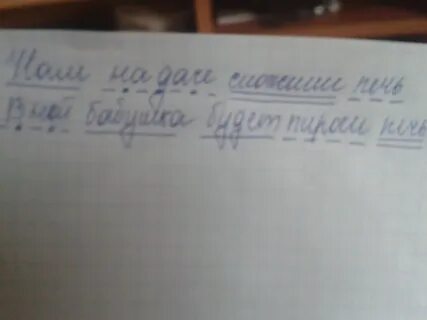 Нам на даче сложили печь
В ней бабушка будет пироги печь